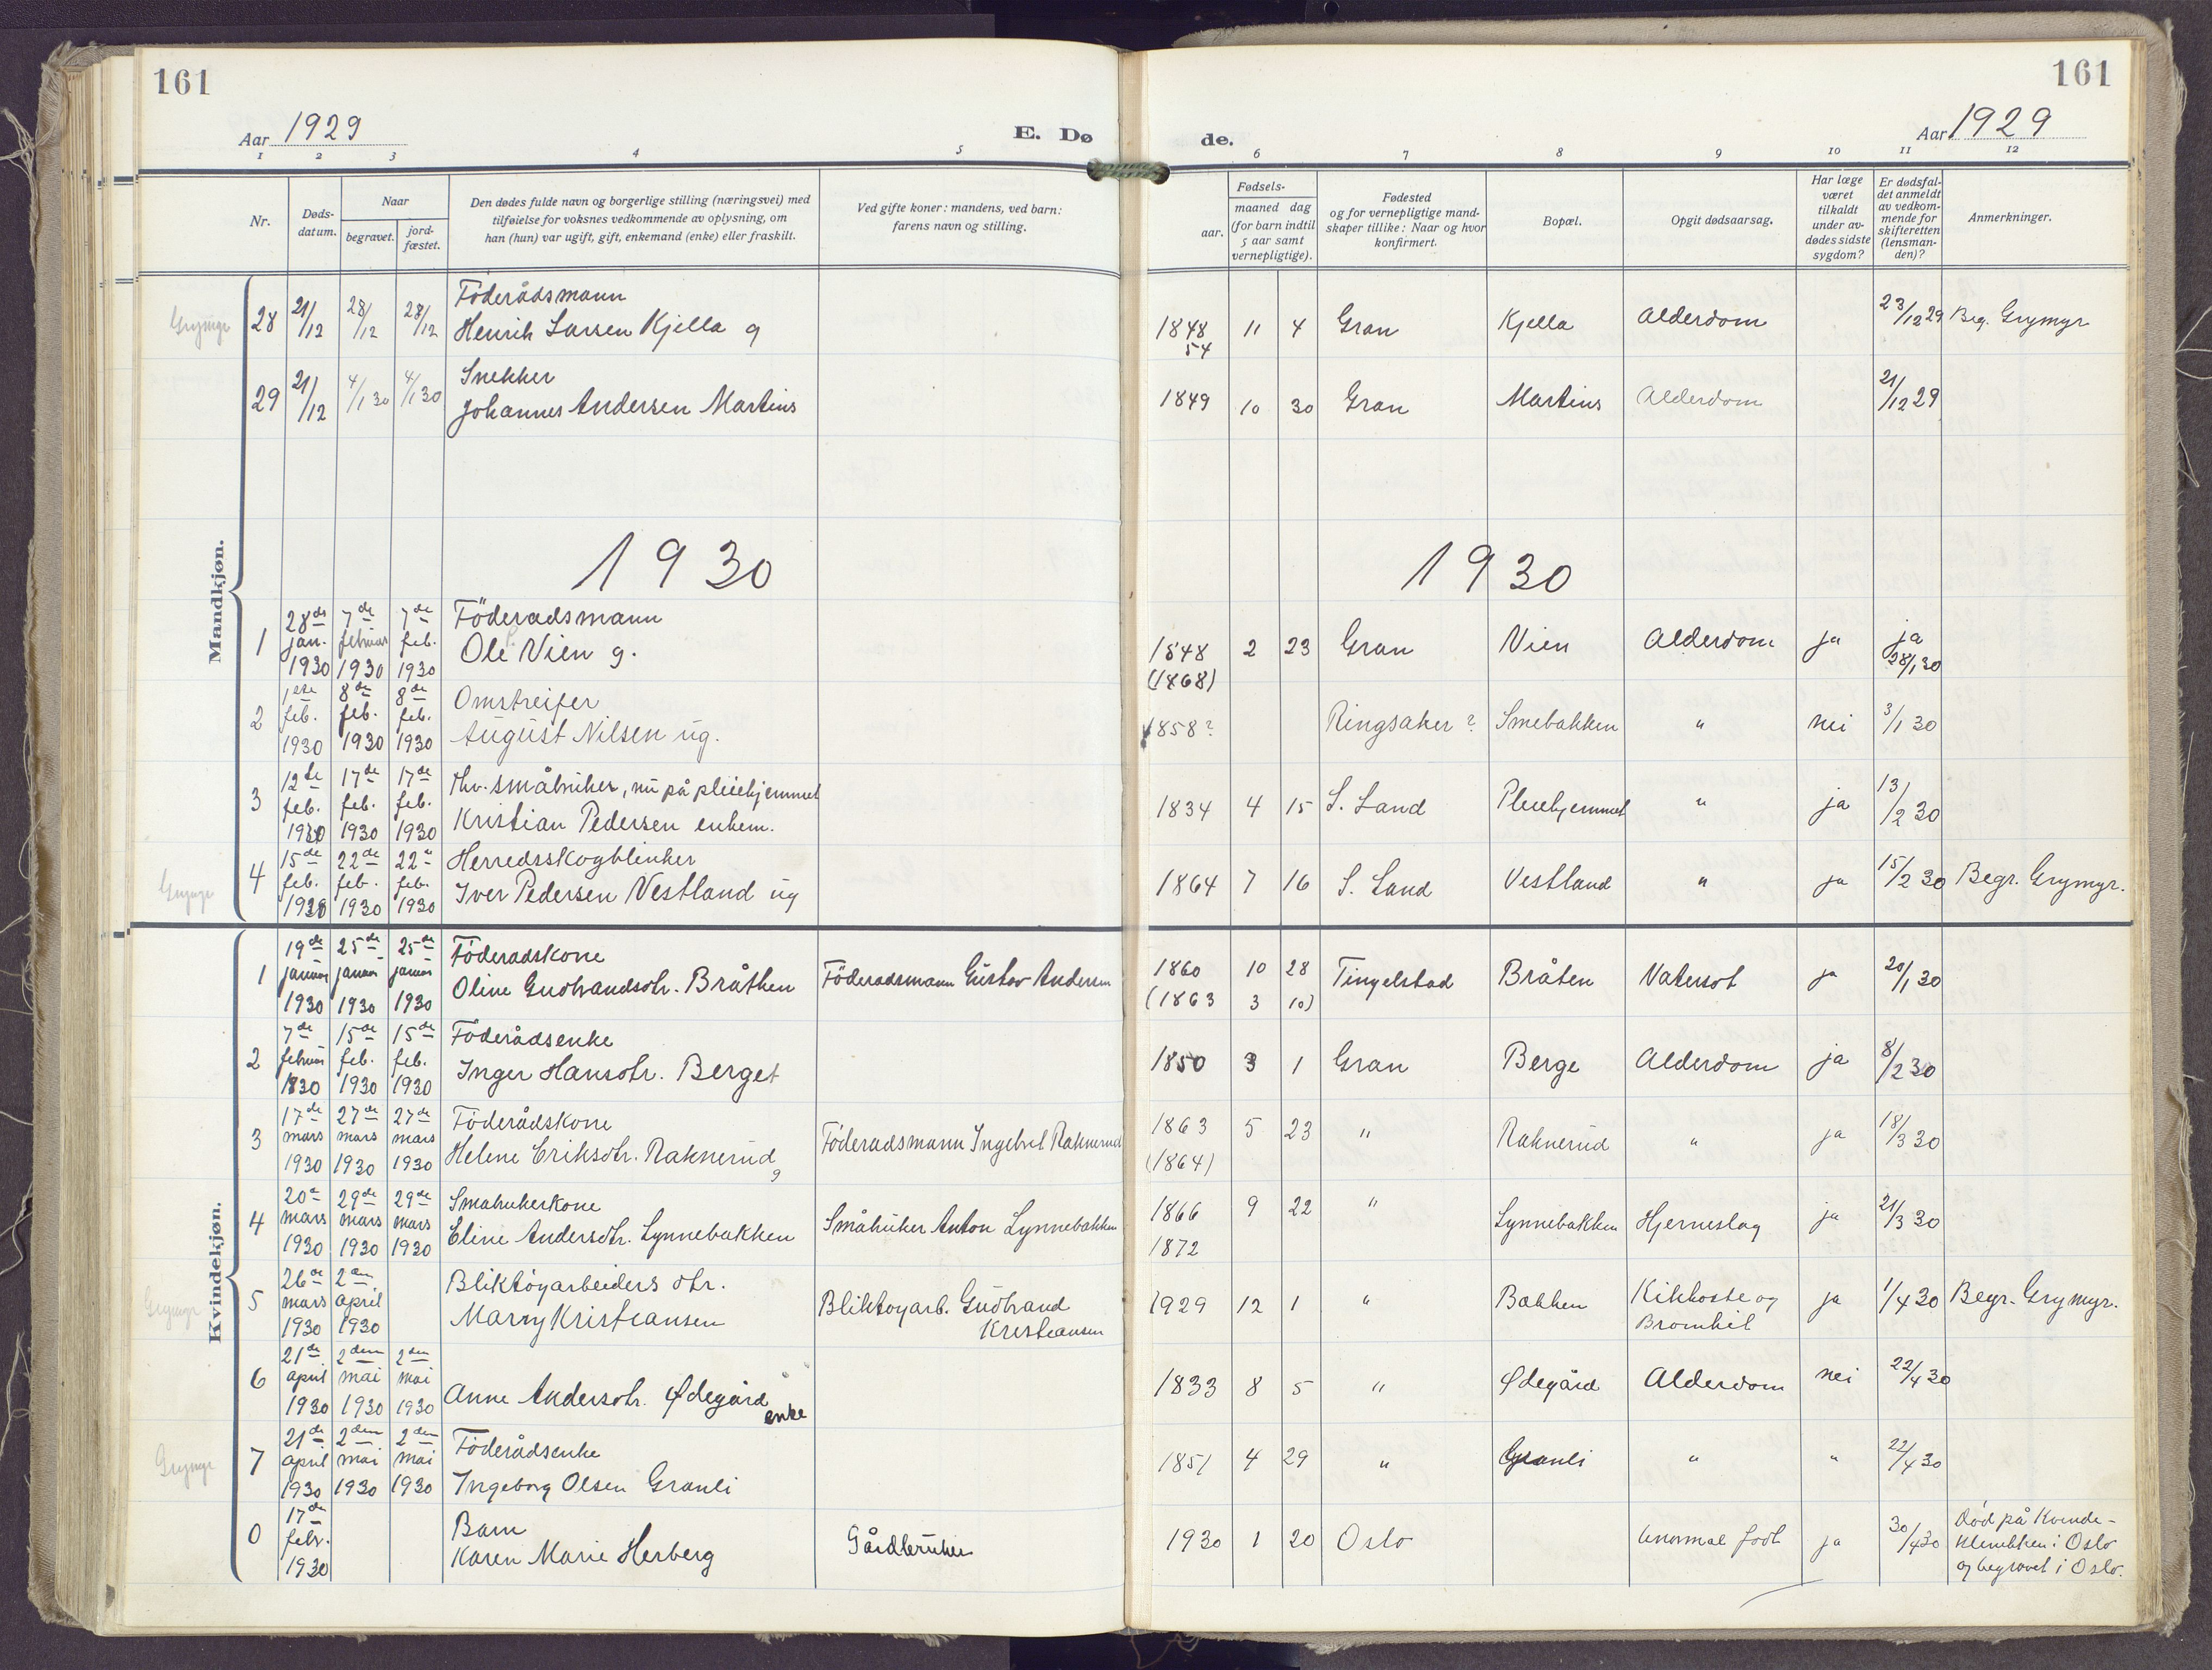 161
161
Aar 1929
E. Dø
de.
Aar 1929
1 2 3 4 5 6 7 8 9 10 11 12
Nr.
Døds-
datum.
Naar
begravet.
jord-
fæstet.
Den dødes fulde navn og borgerlige stilling (næringsvei) med
tilføielse for voksnes vedkommende av oplysning, om
han (hun) var ugift, gift, enkemand (enke) eller fraskilt.
Ved gifte koner: mandens, ved barn:
farens navn og stilling.
Fødsels-
aar.
maaned dag
(for barn indtil
5 aar samt
vernepligtige).
Fødested
og for vernepligtige mand-
skaper tillike: Naar og hvor
konfirmert.
Bopæl.
Opgit dødsaarsag.
Har læge
været
tilkaldt
under av-
dødes sidste
sygdom?
Er dødsfal-
det anmeldt
av vedkom-
mende for
skifteretten
(lensman-
den)?
Anmerkninger.
Mandkjøn.
Grymyr 28 21/12 28/12 28/12 Föderådsmann
Henrik Larsen Kjella g 1848 11 4 Gran Kjella Alderdom 23/12 29 Beg. Grymyr
54
29 21/12 4/1 30 4/1 30 Snekker
Johannes Andersen Martins 1849 10 30 Gran Martins Alderdom 21/12 29
1930 1930
1 28de 7de 7de Föderadsmann
jan. februar feb. Ole Vien g. 1848 2 23 Gran Vien Alderdom ja ja
1930 1930 1930 (1868) 28/1 30
2 1ste 8de 8de Omstreifer
feb. feb. feb. August Nilsen ug. 1858? Ringsaker? Smebakken " nei 3/1 30
1930 1930 1930
3 12te 17de 17de Fhv. småbruker, nu på pleiehjemmet
feb. feb. feb. Kristian Pedersen enkem. 1834 4 15 S. Land Pleiehjemmet " ja 13/2 30
1930 1930 1930
4 15de 22de 22de Herredsskogblinker
feb. feb. feb. Iver Pedersen Vestland ug 1864 7 16 S. Land Vestland " ja 15/2 30 Begr. Grymyr.
1930 1930 1930
Kvindekjøn.
1 19de 25de 25de Föderadskone
januar januar januar Oline Gudbrandsdtr. Bråthen Föderadsmann Gustav Andersen 1860 10 28 Tingelstad Bråten Vatersot ja 20/1 30
1930 1930 1930 (1863 3 10)
2 7de 15de 15de Föderådsenke
februar feb. feb. Inger Hansdtr. Berget 1850 3 1 Gran Berge Alderdom ja 8/2 30
1930 1930 1930
3 17de 27de 27de Föderådskone
mars mars mars Helene Eriksdtr. Raknerud g Föderadsmann Ingebret Raknerud 1863 5 23 " Raknerud " ja 18/3 30
1930 1930 1930 (1864)
4 20de 29de 29de Småbrukerkone
mars mars mars Eline Andersdtr. Lynnebakken Småbruker Anton Lynnebakken 1866 9 22 " Lynnebakken Hjerneslag ja 21/3 30
1930 1930 1930 1872
5 26de 2den Bliktöyarbeiders dtr.
mars april Marny Kristiansen Bliktoyarb. Gudbrand 1929 12 1 " Bakken Kikhoste og ja 1/4 30 Begr. Grymyr.
1930 1930 Kristiansen Bronkit
6 21de 2den 2den
april mai mai Anne Andersdtr. Ødegård 1833 8 5 " Ødegård Alderdom nei 22/4 30
1930 1930 1930 enke
Grymyr 7 21de 2den 2den Föderådsenke
april mai mai Ingeborg Olsen Granli 1851 4 29 " Granli " " 22/4 30
1930 1930 1930
0 17de Barn
febr. Karen Marie Herberg Gårdbruker 1930 1 20 Oslo unormal født ja 30/4 30 Død på Kvinde-
1930 klinikken i Oslo
og begravet i Oslo.